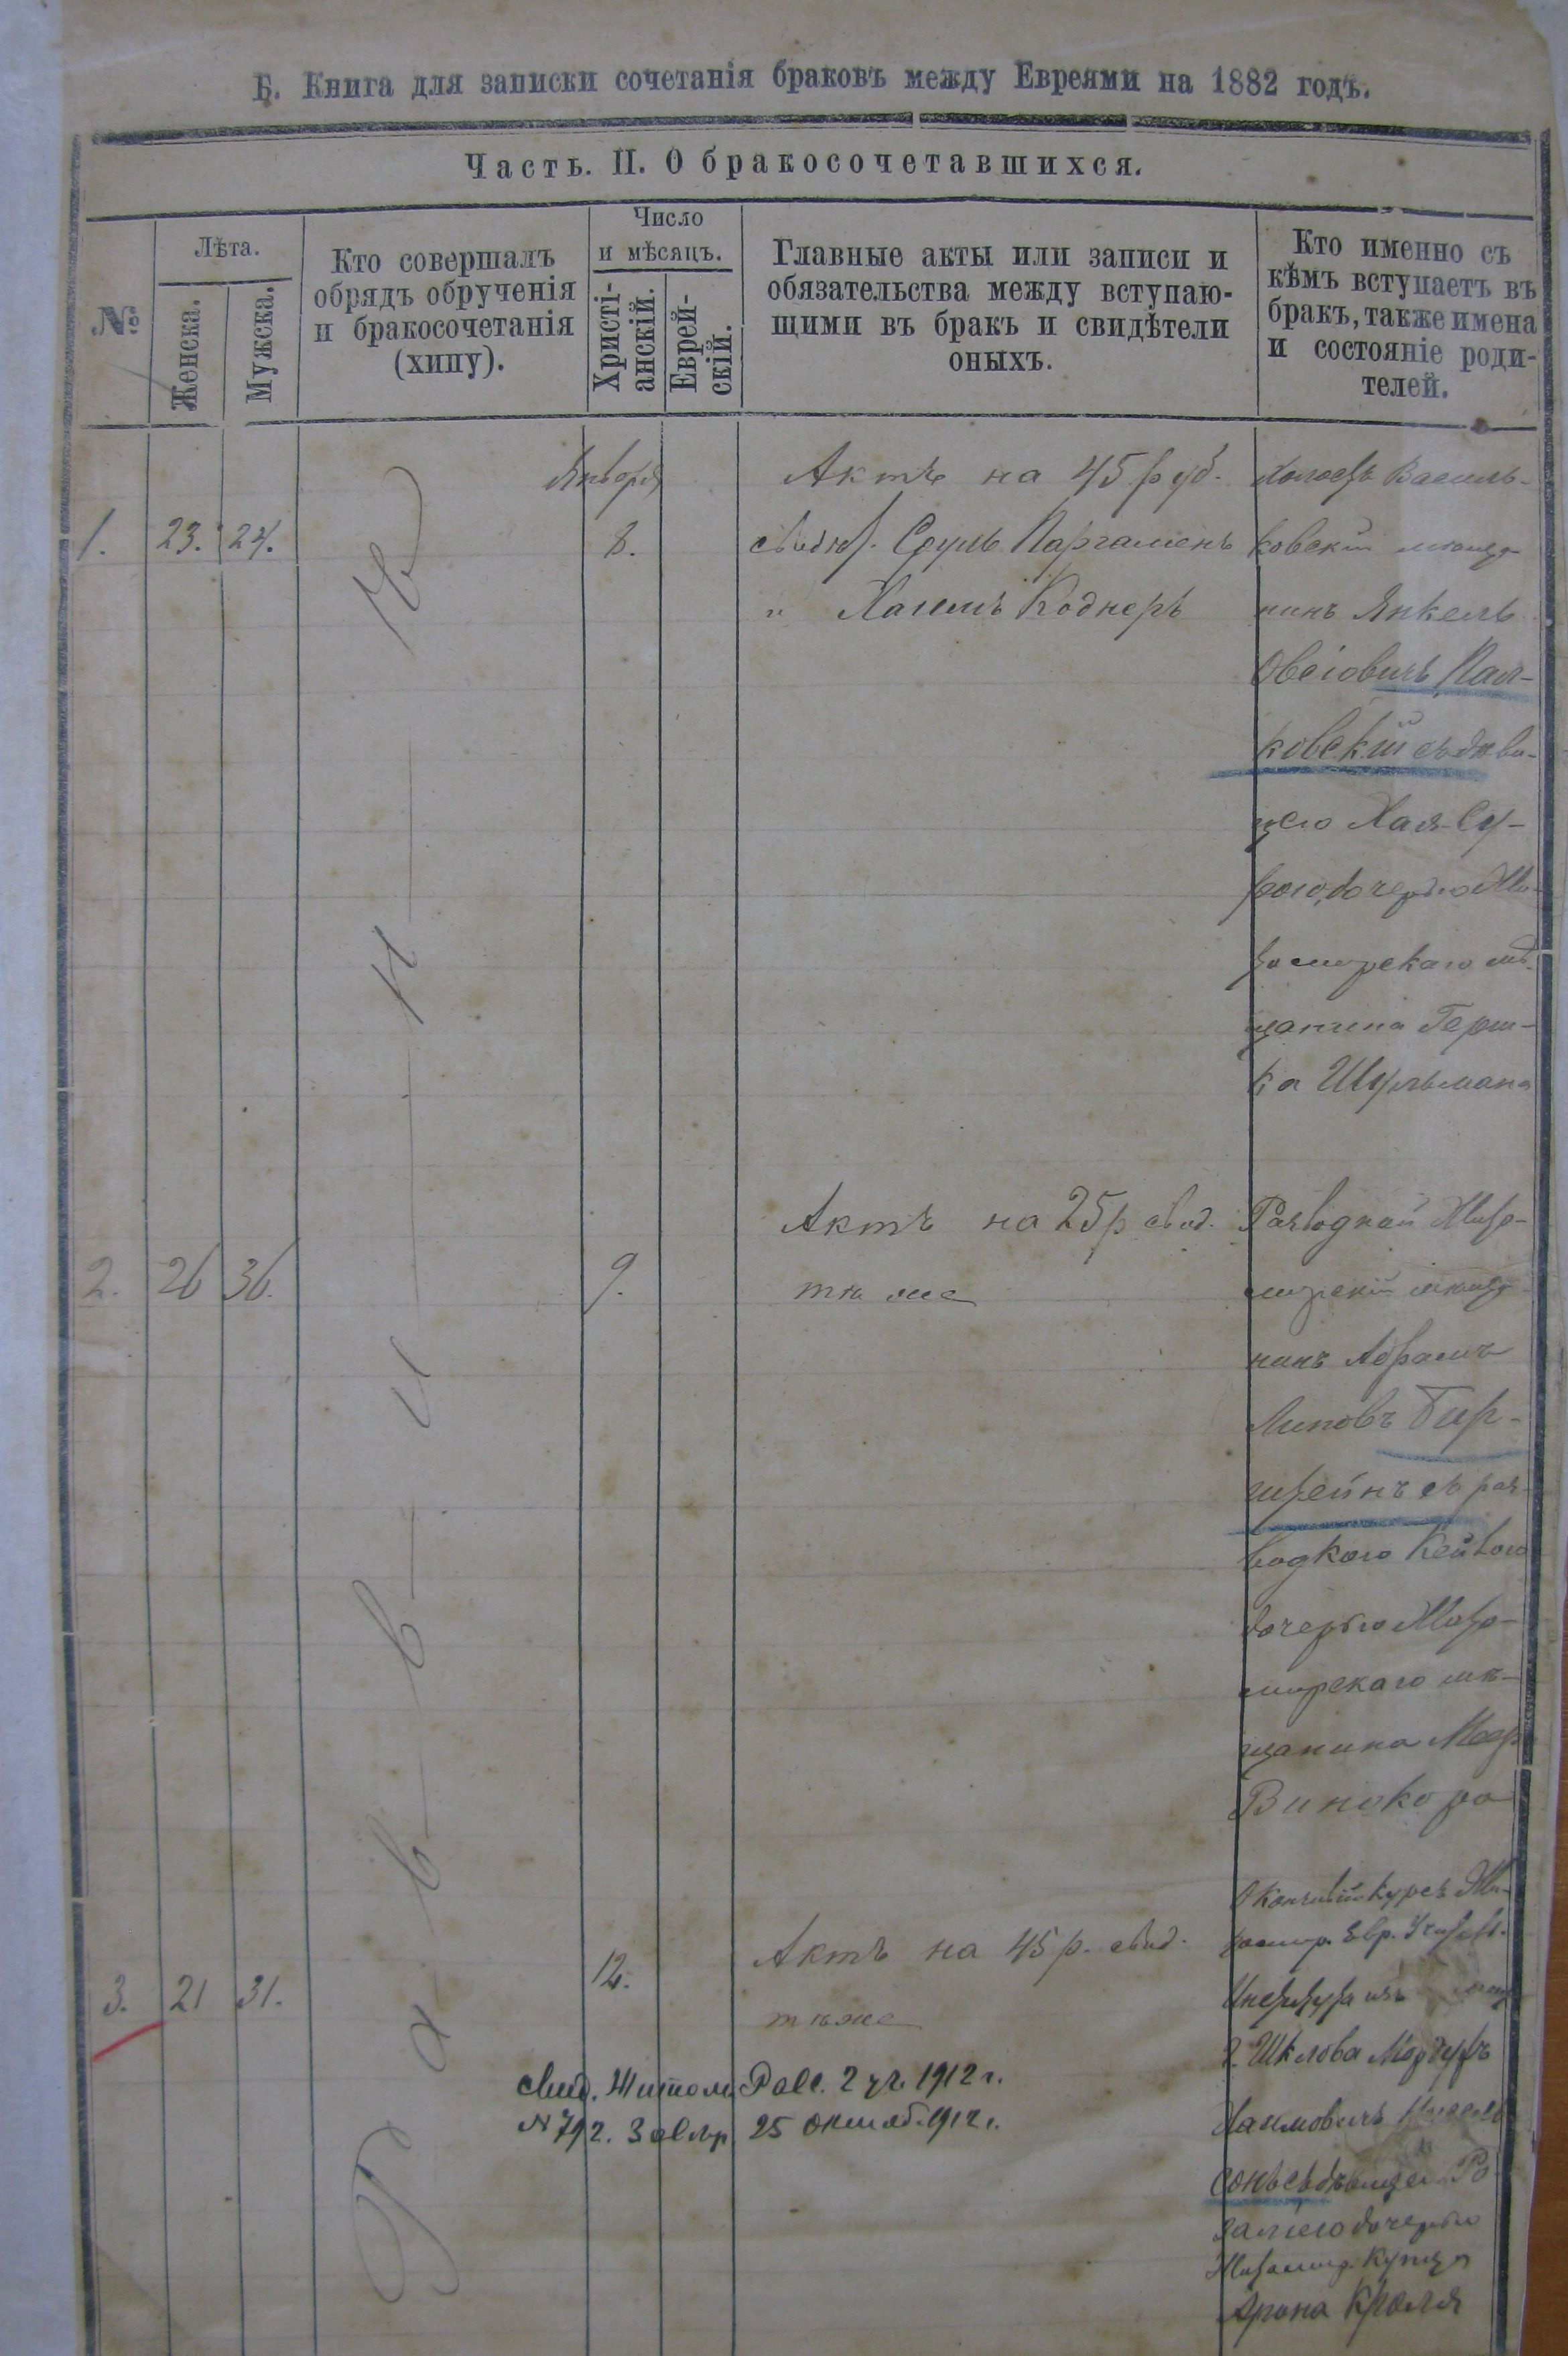 Б. Книга для записки сочетанія браковъ между Евреями на 1882 годъ.
Часть. II. О бракосочетавшихся.
№
Лѣта.
Женска.
Мужска.
Кто совершалъ
обрядъ обрученія
и бракосочетанія
(хипу).
Число
и мѣсяцъ.
Христі-
анскій.
Еврей-
скій.
Главные акты или записи и
обязательства между вступаю-
щими въ бракъ и свидѣтели
оныхъ.
Кто именно съ
кѣмъ вступаетъ въ
бракъ, также имена
и состояніе роди-
телей.
Раввинъ
Января
1. 23. 24.
8.
Актъ на 45 руб.
свидѣт. Сруль Паргаменъ
и Хаимъ Коднеръ
Холостъ Василь-
ковскій мѣща-
нинъ Янкель
Овсіовичъ Пал-
ковскій съ дѣви-
цею Хая-Су-
рою, дочерью Жи-
томирскаго мѣ-
щанина Герш-
ка Шульмана
2. 26 36.
9.
Актъ на 25 р свид.
тѣ же
Разводной Жито-
мирскій мѣща-
нинъ Абрамъ
Липовъ Бир-
штейнъ съ раз-
водкою Кейлою
дочерью Жито-
мирскаго мѣ-
щанина Меера
Винокора
3. 21 31.
12.
Актъ на 45 р. свид.
тѣ же
Окончивш. курсъ Жи-
томир. Евр. Учит.
изъ
г. Шклова
Хаимовичъ
сонъ съ дѣвицею Ро-
заліею дочерью
Житомир. купца
Арона Кроля
Свид. Житом. Рав. 2 уч. 1912 г.
№ 792. 25 октяб. 1912 г.